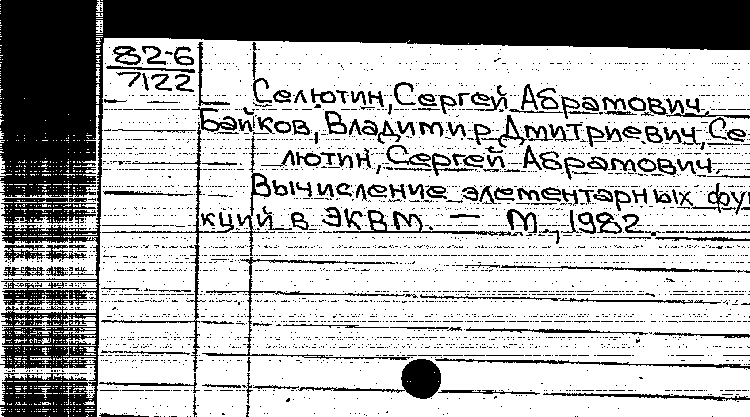 82-6
7122
Селютин, Сергей Абрамович.
Байков, Владимир Дмитриевич, Се
лютин, Сергей Абрамович.
Вычисление элементарных фун
кций в ЭКВМ. — М., 1982.